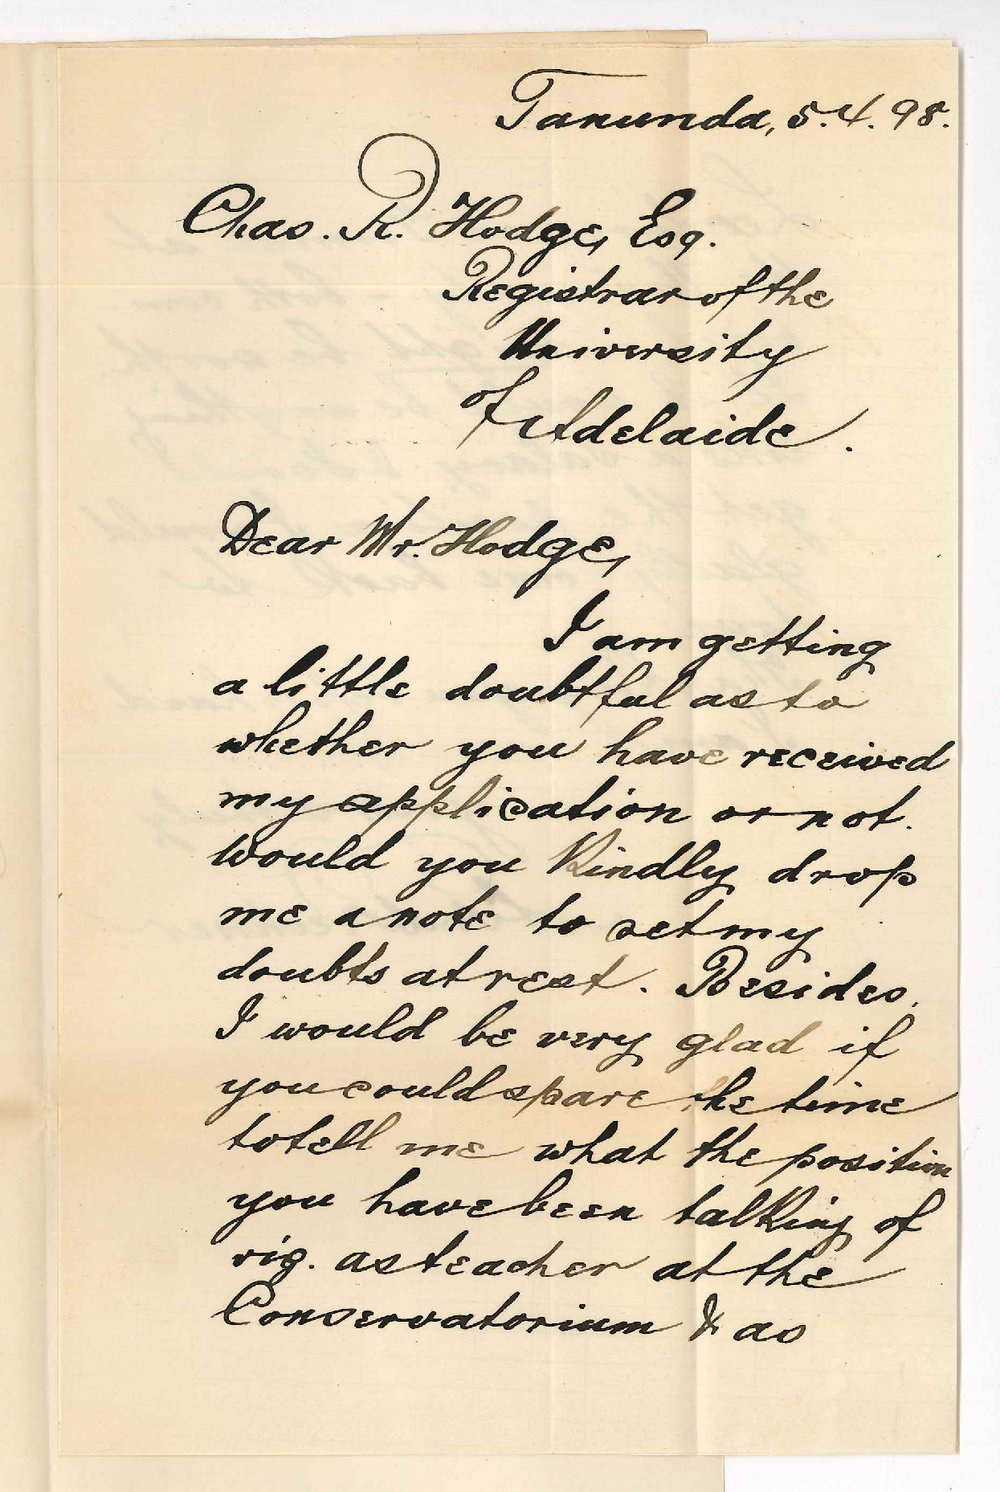 Tanunda, 5.4.98.
Chas. R. Hodge, Esq.
Registrar of the
University
of Adelaide.
Dear Mr. Hodge,
I am getting
a little doubtful as to
whether you have received
my application or not.
Would you kindly drop
me a note to set my
doubts at rest. Besides,
I would be very glad if
you could spare the time
to tell me what the position
you have been talking of
vig. as teacher at the
Conservatorium & as